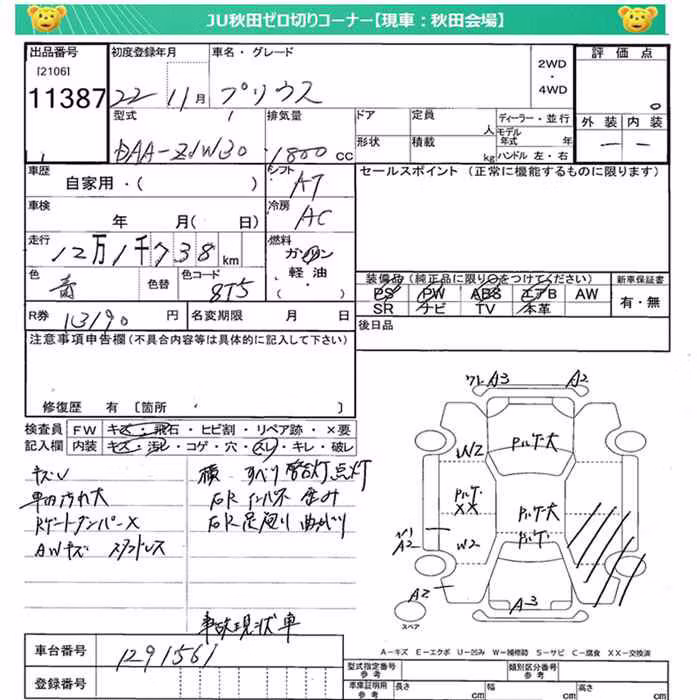 JU秋田ゼロ切りコーナー【現車：秋田会場】
出品番号 [2106] 11387
初度登録年月 22 11月
車名・グレード プリウス
2WD・4WD
評価点 0
外装 内装
— —
型式 DAA-ZVW30
排気量 1800 CC
ドア 定員 人
形状 積載 kg
ディーラー・並行
モデル年式 年
ハンドル 左・右
車歴 自家用・( )
シフト AT
セールスポイント (正常に機能するものに限ります)
車検 年 月( 日)
冷房 AC
走行 12万1千738km
燃料 ガソリン 軽油 ・( )
色 青 色替 色コード 8T5
装備品(純正品に限り○をつけてください) 新車保証書
PS PW ABS エアB AW 有・無
SR ナビ TV 本革
R券 10190 円 名変期限 月 日
後日品
注意事項申告欄(不具合内容等は具体的に記入して下さい)
修復歴 有 〔箇所 〕
検査員記入欄 FW キズ・飛石・ヒビ割・リペア跡・×要
内装 キズ・汚レ・コゲ・穴・スレ・キレ・破レ
車内汚れ大
Rゲートダンパー×
AWキズ スタッドレス
横すべり警告灯点灯
右Rインパネ歪み
右R足廻り曲がり
事故現状車
ワレ A3 A2
W2 Pルーケ・大
Pルケ・ XX Pルケ・大
Pルケ・
A2 W2
A2 A3
スペア
A－キズ E－エクボ U－凹み W－補修跡 S－サビ C－腐食 XX－交換済
車台番号 1291561
登録番号
型式指定番号 参考 類別区分番号 参考
車庫証明用 参考 長さ cm 幅 cm 高さ cm